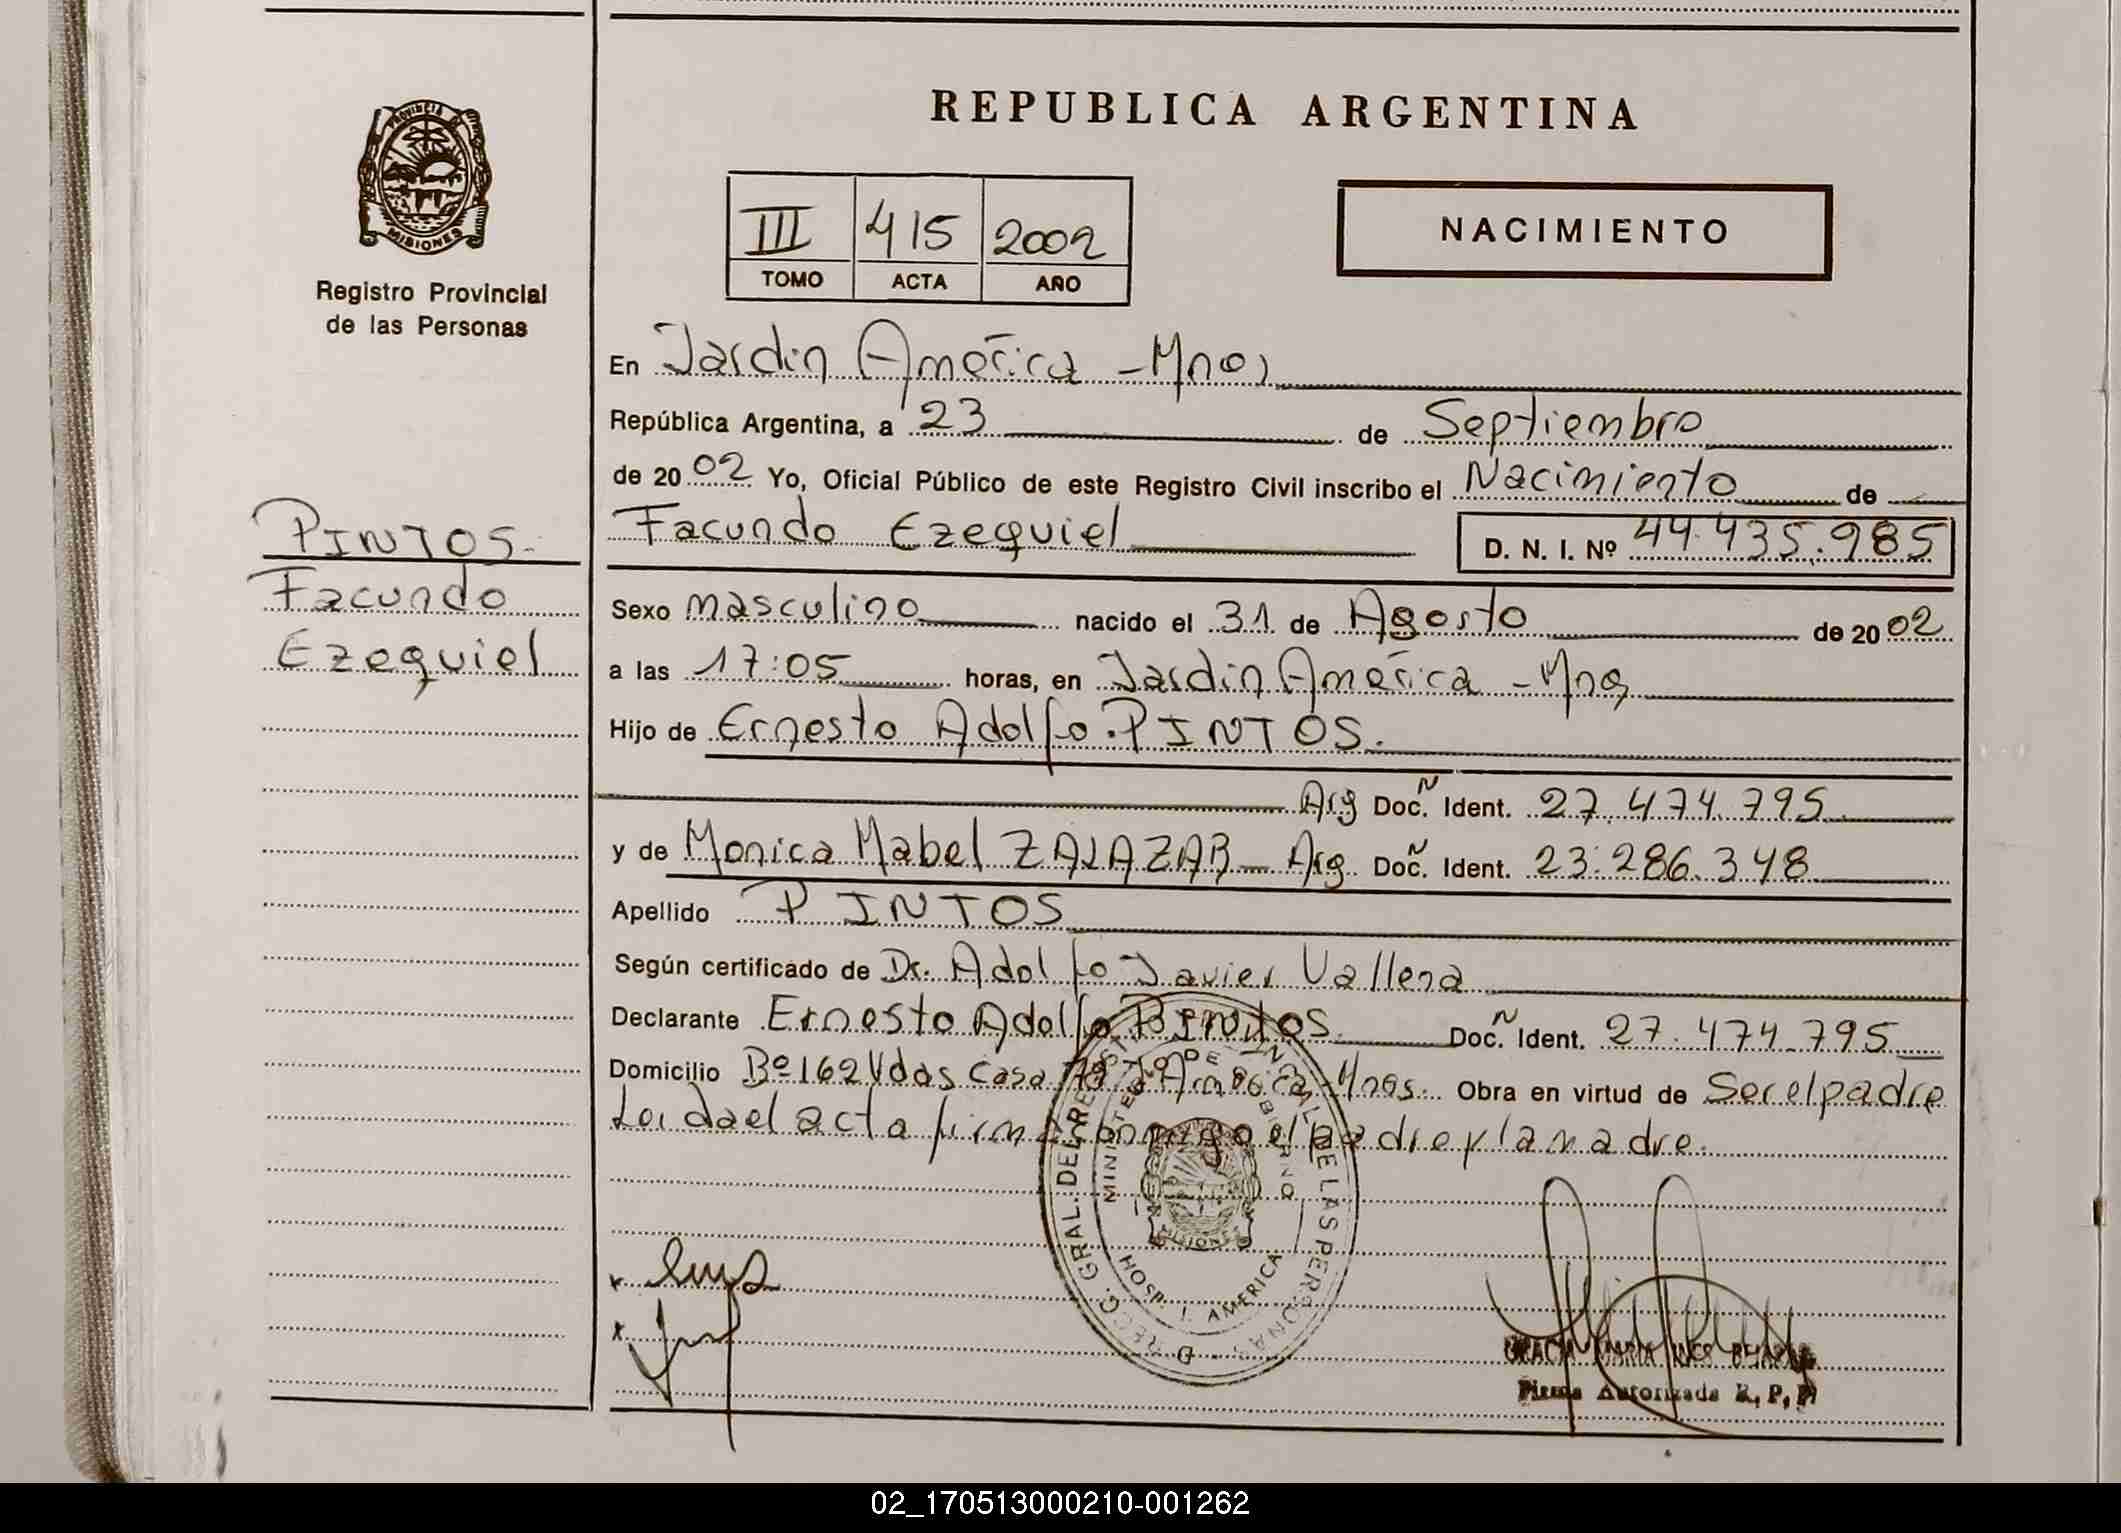 REPUBLICA ARGENTINA
PROVINCIA DE
MISIONES
Registro Provincial
de las Personas
III 415 2002
TOMO ACTA AÑO
NACIMIENTO
En Jardin América - Mnes
República Argentina, a 23 de Septiembre
de 2002 Yo, Oficial Público de este Registro Civil inscribo el Nacimiento de
PINTOS.
Facundo
Ezequiel
Facundo Ezequiel D. N. I. Nº 44.435.985
Sexo masculino nacido el 31 de Agosto de 2002
a las 17:05 horas, en Jardin América - Mnes
Hijo de Ernesto Adolfo PINTOS.
Arg Doc. N Ident. 27.474.795
y de Monica Mabel ZALAZAR - Arg Doc. N Ident. 23.286.348
Apellido PINTOS
Según certificado de Dr. Adolfo Javier Vallena
Declarante Ernesto Adolfo Pintos Doc. N Ident. 27.474.795
Domicilio Bº 162 Vdas Casa América - Mnes. Obra en virtud de Ser el padre
Leida el acta firma conmigo el padre y la madre.
MINISTERIO DE GOBIERNO
HOSP. J. AMERICA
MISIONES
Firma Autorizada R. P. P.
02_170513000210-001262